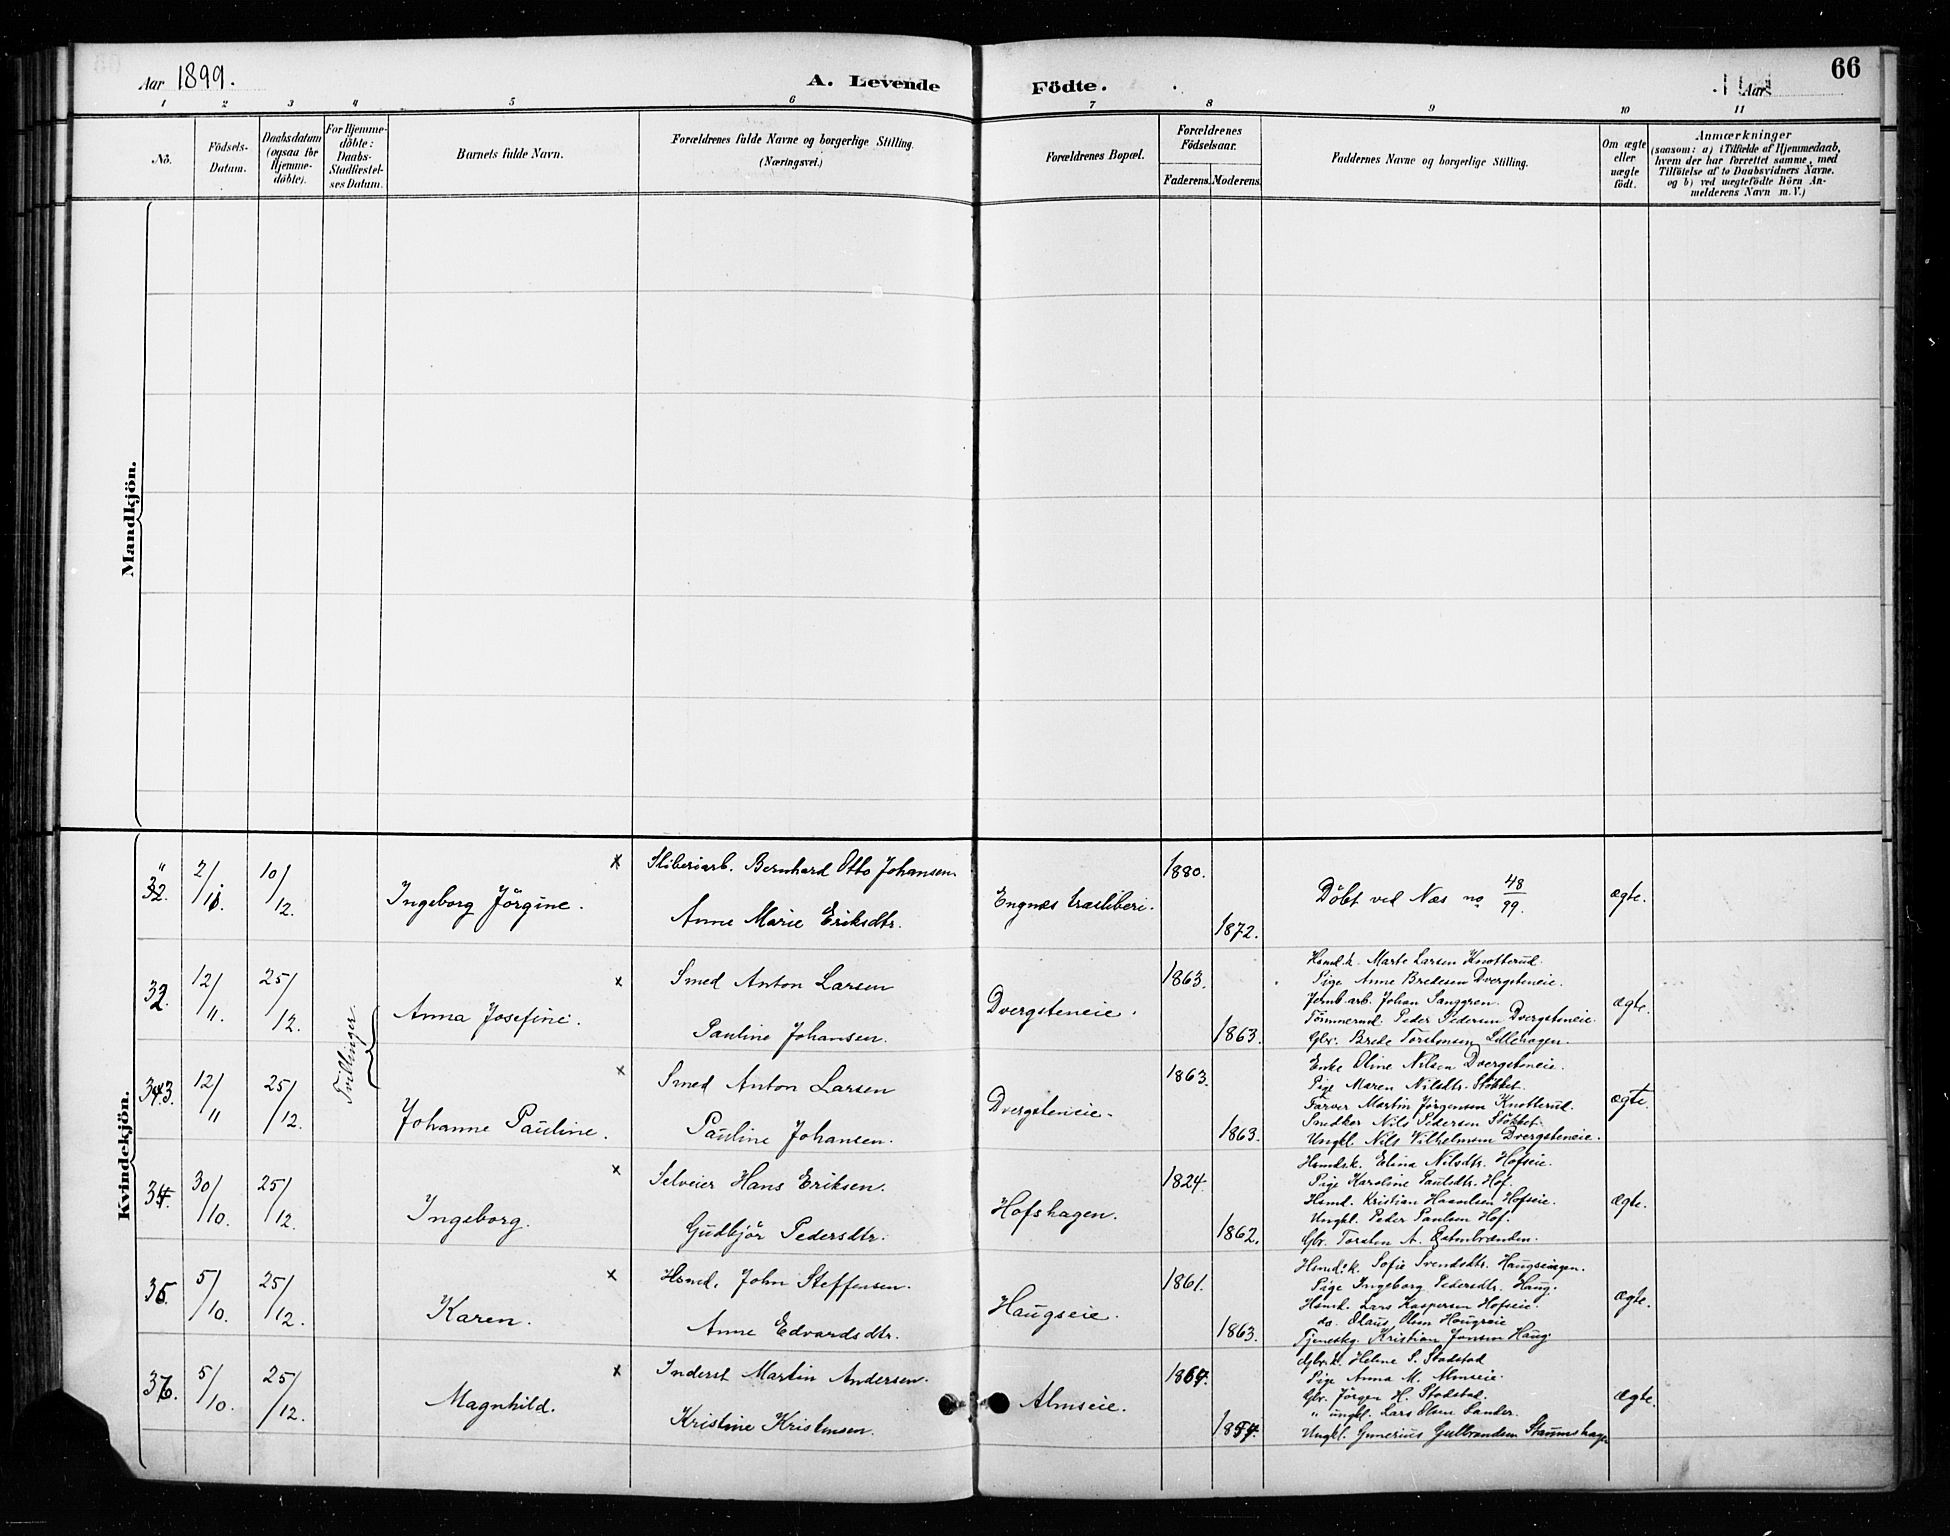 Aar 1899.
A. Levende Födte.
Aar
66
1 2 3 4 5 6 7 8 9 10 11
No.
Födsels-Datum.
Daabsdatum (ogsaa for Hjemme-döbte).
For Hjemme-döbte: Daabs-Stadfæstel-ses Datum.
Barnets fulde Navn.
Forældrenes fulde Navne og borgerlige Stilling. (Næringsvei.)
Forældrenes Bopæl.
Forældrenes Födselsaar.
Faderens. Moderens.
Faddernes Navne og borgerlige Stilling.
Om ægte eller uægte födt.
Anmærkninger (saasom: a) i Tilfælde af Hjemmedaab, hvem der har forrettet samme, med Tilföielse af to Daabsvidners Navne. og b) ved uægtefödte Börn An-melderens Navn m. V.)
Mandkjön.
Kvindekjön.
" 32. 2/11. 10/12. Ingeborg Jörgine. x Sliberiarb. Bernhard Otto Johansen
Anne Marie Eriksdtr.
Engnes træsliberi. 1880. 1872.
Döbt ved Næs no 48/99. ægte.
Tvillinger
32. 12/11. 25/12. Anna Josefine. x Smed Anton Larsen
Pauline Johansen.
Dvergsteneie. 1863. 1863.
Hsmd.k. Marte Larsen Knotterud.
Pige Anne Bredesen Dvergsteneie.
Jernb.arb. Johan Sanggren.
Tömmermd. Peder Pedersen Dvergsteneie.
Gbr. Brede Torstensen Lillehagen.
ægte.
33. 12/11 25/12. Johanne Pauline. x Smed Anton Larsen
Pauline Johansen.
Dvergsteneie. 1863. 1863.
Enke Oline Nilsen Dvergsteneie.
Pige Maren Nilsdtr. Stökket.
Farver Martin Jörgensen Knotterud.
Snedker Nils Pedersen Stökket.
Ungkl. Nils Vilhelmsen Dvergsteneie.
ægte.
34. 30/10. 25/12. Ingeborg. x Selveier Hans Eriksen.
Gudbjör Pedersdtr.
Hofshagen. 1824. 1862.
Hsmds.k. Elina Nilsdtr. Hofseie.
Pige Karoline Paulsdtr. Hof.
Hsmd. Kristian Haavelsen Hofseie.
Ungkl. Peder Paulsen Hof.
Gbr. Torsten A.
ægte.
35. 5/10. 25/12. Karen. x Hsmd. John Steffensen.
Anne Edvardsdtr.
Haugseie. 1861. 1863.
Hsmds.k. Sofie Svendsdtr.
Pige Ingeborg Pedersdtr. Haug.
Hsmd. Lars Kaspersen Hofseie.
do. Olaus Olsen Haugseie
Tjenestkg. Kristian Jonsen Haug.
ægte.
36. 5/10. 25/12. Magnhild. x Inderst Martin Andersen.
Kristine Kristensen.
Almseie.
Gbr.k. Helene S. Stadstad
Pige Anna M. Almseie.
Gbr. Jörgen H. Stadstad.
" ungkl. Lars Olsen Sander.
Ungkl. Gunerius Gulbrandsen
ægte.